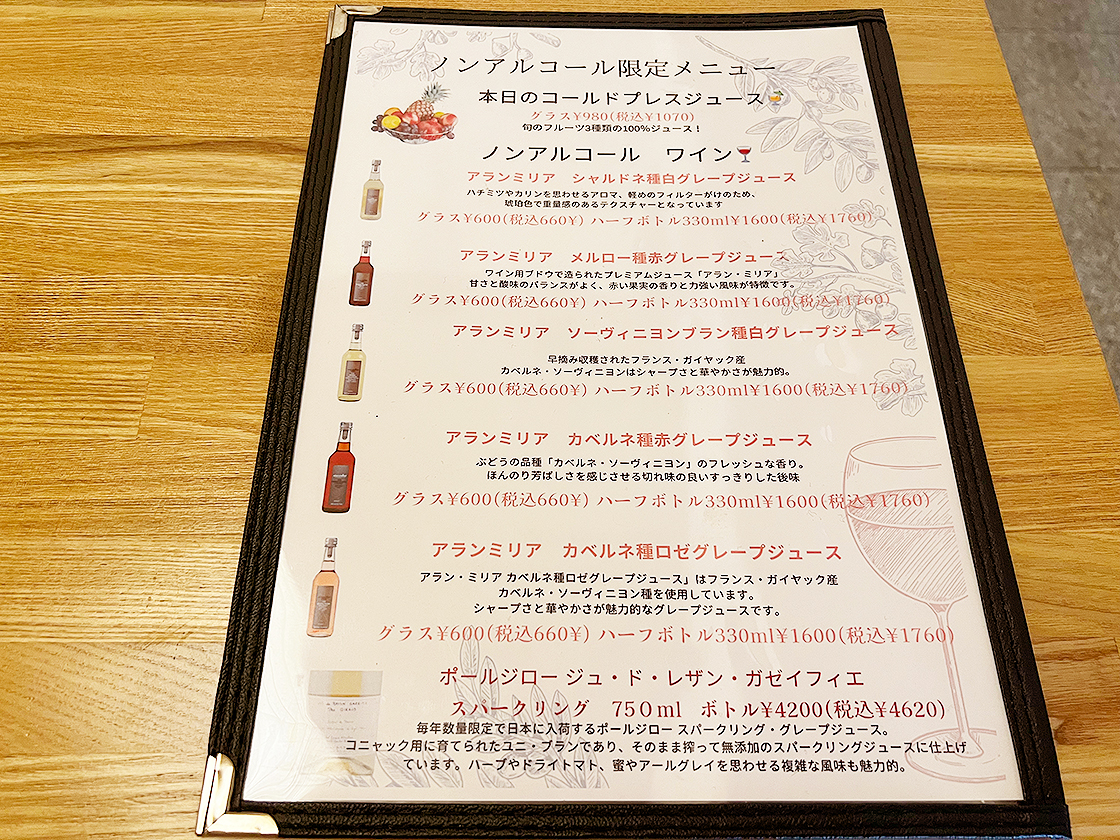 ノンアルコール限定メニュー
本日のコールドプレスジュース🍹
グラス¥980(税込¥1070)
旬のフルーツ3種類の100%ジュース！
ノンアルコール　ワイン🍷
アランミリア　シャルドネ種白グレープジュース
ハチミツやカリンを思わせるアロマ、軽めのフィルターがけのため、
琥珀色で重量感のあるテクスチャーとなっています
グラス¥600(税込660¥) ハーフボトル330ml¥1600(税込¥1760)
アランミリア　メルロー種赤グレープジュース
ワイン用ブドウで造られたプレミアムジュース「アラン・ミリア」
甘さと酸味のバランスがよく、赤い果実の香りと力強い風味が特徴です。
グラス¥600(税込660¥) ハーフボトル330ml¥1600(税込¥1760)
アランミリア　ソーヴィニヨンブラン種白グレープジュース
早摘み収穫されたフランス・ガイヤック産
カベルネ・ソーヴィニヨンはシャープさと華やかさが魅力的。
グラス¥600(税込660¥) ハーフボトル330ml¥1600(税込¥1760)
アランミリア　カベルネ種赤グレープジュース
ぶどうの品種「カベルネ・ソーヴィニヨン」のフレッシュな香り。
ほんのり芳ばしさを感じさせる切れ味の良いすっきりした後味
グラス¥600(税込660¥) ハーフボトル330ml¥1600(税込¥1760)
アランミリア　カベルネ種ロゼグレープジュース
アラン・ミリア カベルネ種ロゼグレープジュース」はフランス・ガイヤック産
カベルネ・ソーヴィニヨン種を使用しています。
シャープさと華やかさが魅力的なグレープジュースです。
グラス¥600(税込660¥) ハーフボトル330ml¥1600(税込¥1760)
ポールジロー ジュ・ド・レザン・ガゼイフィエ
スパークリング　750ml　ボトル¥4200(税込¥4620)
毎年数量限定で日本に入荷するポールジロー スパークリング・グレープジュース。
コニャック用に育てられたユニ・ブランであり、そのまま搾って無添加のスパークリングジュースに仕上げ
ています。ハーブやドライトマト、蜜やアールグレイを思わせる複雑な風味も魅力的。